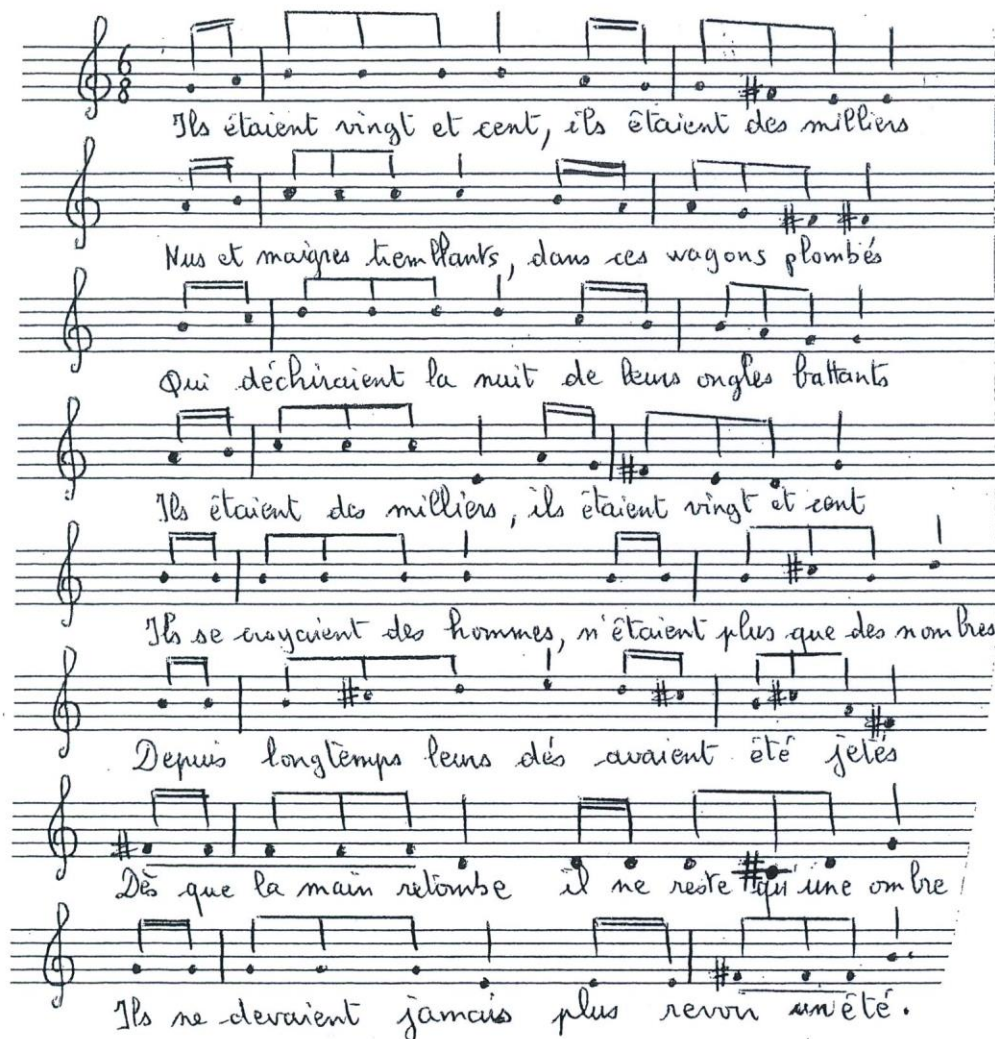 6
8
Ils étaient vingt et cent, ils étaient des milliers
Nus et maigres tremblants, dans ces wagons plombés
Qui déchiraient la nuit de leurs ongles battants
Ils étaient des milliers, ils étaient vingt et cent
Ils se croyaient des hommes, n'étaient plus que des nombres
Depuis longtemps leurs dés avaient été jetés
Dès que la main retombe il ne reste qu'une ombre
Ils ne devaient jamais plus revoir un été.